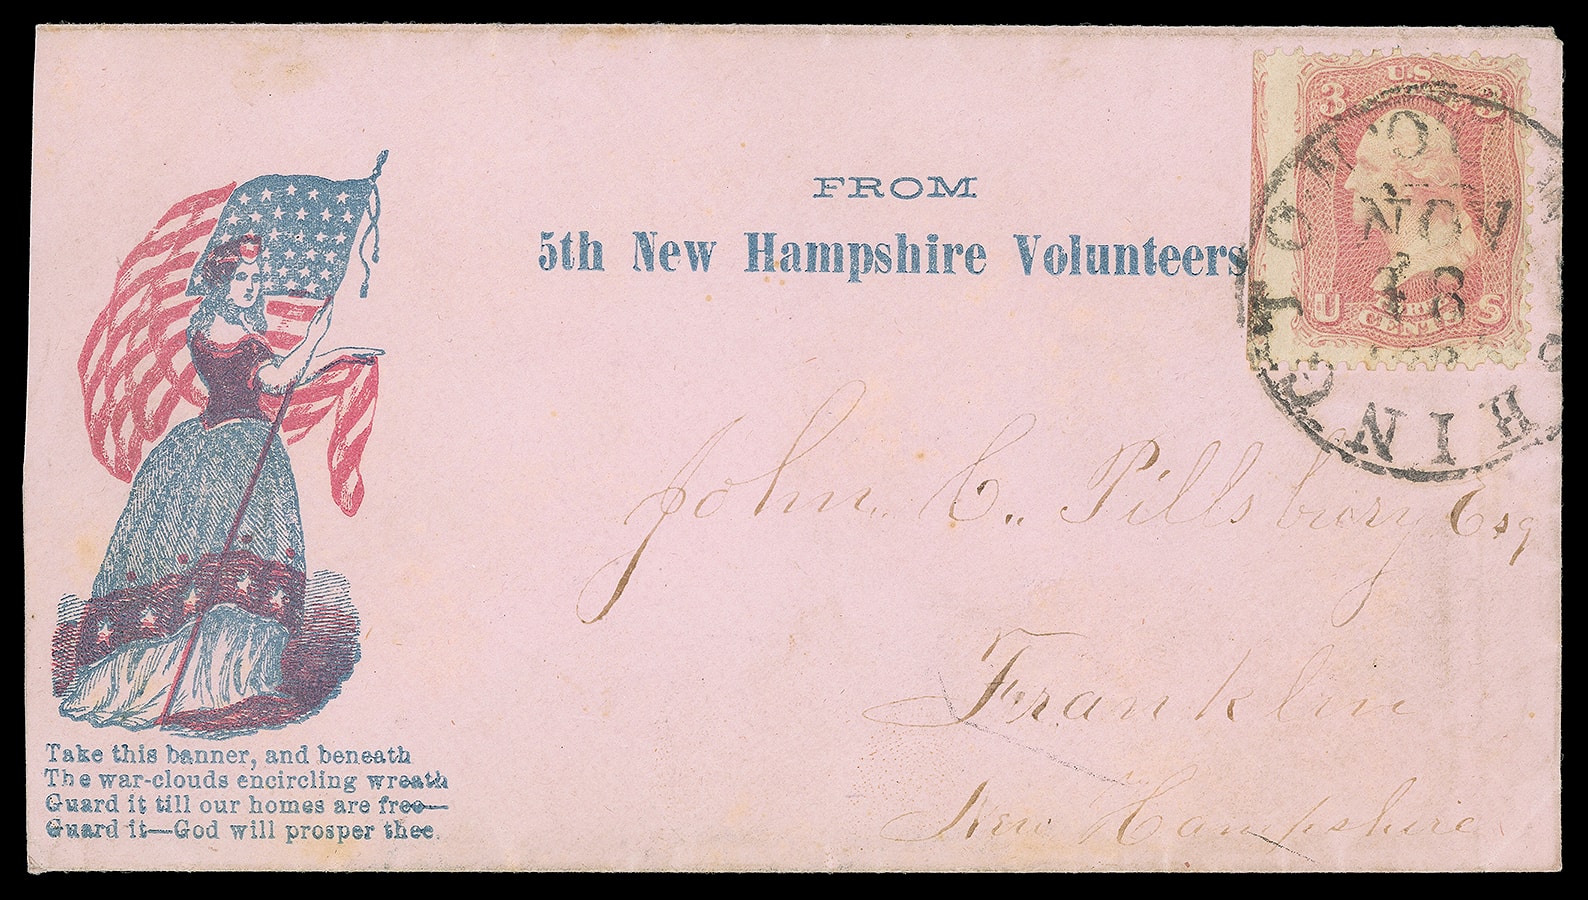 FROM
5th New Hampshire Volunteers
U S
3 3
U S
CENTS
WASHINGTON
NOV
John C. Pillsbury Esq
Franklin
New Hampshire
Take this banner, and beneath
The war-clouds encircling wreath
Guard it till our homes are free—
Guard it—God will prosper thee.